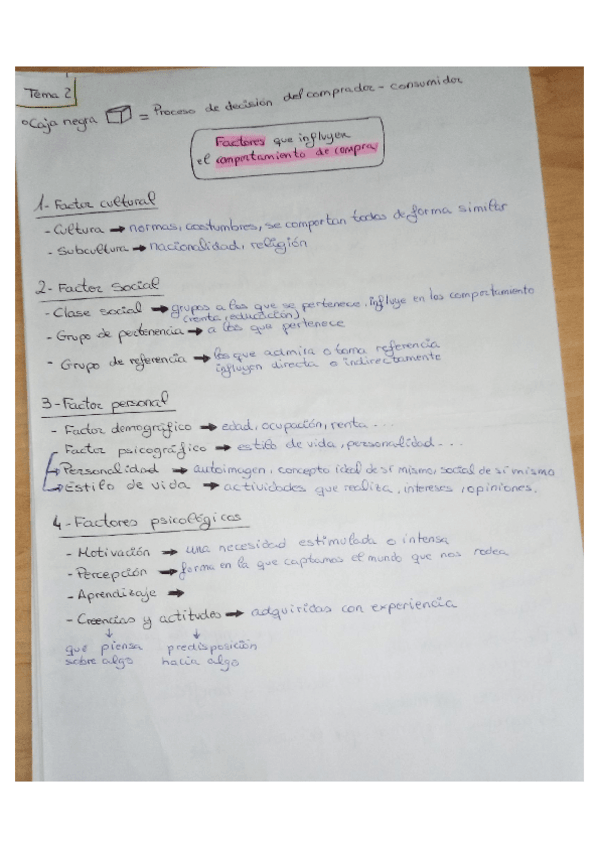 Tema 2
Caja negra = Proceso de decisión del comprador - consumidor
Factores que influyen
el comportamiento de compra
1- Factor cultural
- Cultura → normas, costumbres, se comportan todos de forma similar
- Subcultura → nacionalidad, religión
2- Factor social
- Clase social → grupos a los que se pertenece, influye en los comportamiento
(renta, educación)
- Grupo de pertenencia → a los que pertenece
- Grupo de referencia → los que admira o toma referencia
influyen directa o indirectamente
3- Factor personal
- Factor demográfico → edad, ocupación, renta ...
- Factor psicográfico → estilo de vida, personalidad ...
Personalidad → autoimagen, concepto ideal de sí mismo, social de sí mismo
Estilo de vida → actividades que realiza, intereses, opiniones.
4- Factores psicológicos
- Motivación → una necesidad estimulada o intensa
- Percepción → forma en la que captamos el mundo que nos rodea
- Aprendizaje →
- Creencias y actitudes → adquiridas con experiencia
↓ ↓
que piensa predisposición
sobre algo hacia algo